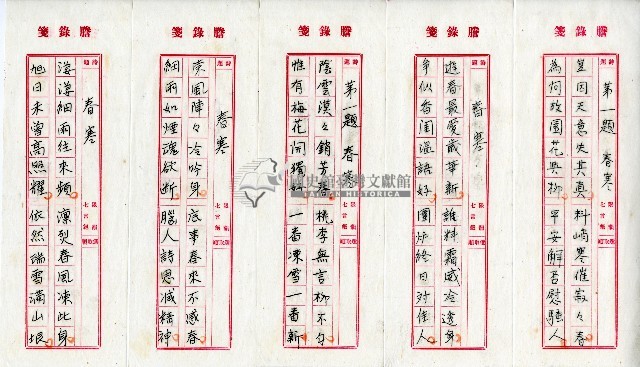 謄錄箋
詩題
第一題 春寒
限
七言絕
豈因天意失其真 料峭寒催寂々春
為何故園花與柳 平安解否慰騷人
謄錄箋
詩題
春寒
限
七言絕
遊春最愛歲華新 誰料霜威冷透身
爭似香閨溫語好 圍炉終日对佳人
謄錄箋
詩題
第一題 春寒
限
七言絕
陰雲漠々銷芳春 桃李無言柳不匀
惟有梅花開獨好 一番凍雪一番新
謄錄箋
詩題
春寒
限
七言絕
凌風陣々冷吟身 底事春來不感春
細雨如煙魂欲斷 腦人詩思減精神
謄錄箋
詩題
春寒
限
七言絕
濛濛細雨往來頻 凛烈春風凍此身
旭日未曾高照耀 依然瑞雪滿山垠
國史館臺灣文獻館
TAIWAN HISTORICA